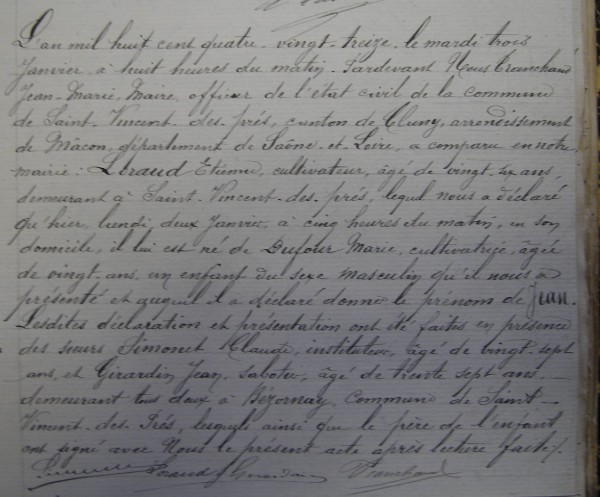 L'an mil huit cent quatre-vingt-treize, le mardi trois
Janvier, à huit heures du matin. Pardevant Nous Tranchand
Jean-Marie, Maire, officier de l'état civil de la commune
de Saint-Vincent-des-prés, canton de Cluny, arrondissement
de Mâcon, département de Saône-et-Loire, a comparu en notre
mairie: Etienne, cultivateur, âgé de vingt-six ans,
demeurant à Saint-Vincent-des-prés, lequel nous a déclaré
qu'hier, lundi, deux Janvier, à cinq heures du matin, en son
domicile, il lui est né de Dufour Marie, cultivatrice, âgée
de vingt ans, un enfant du sexe masculin qu'il nous a
présenté et auquel il a déclaré donner le prénom de Jean.
Lesdites déclaration et présentation ont été faites en présence
des sieurs Simonet Claude, instituteur, âgé de vingt-sept
ans, et Girardin Jean, sabotier, âgé de trente sept ans,
demeurant tous deux à Bézornay, Commune de Saint-
Vincent-des-Prés, lesquels ainsi que le père de l'enfant
ont signé avec Nous le présent acte après lecture faite.